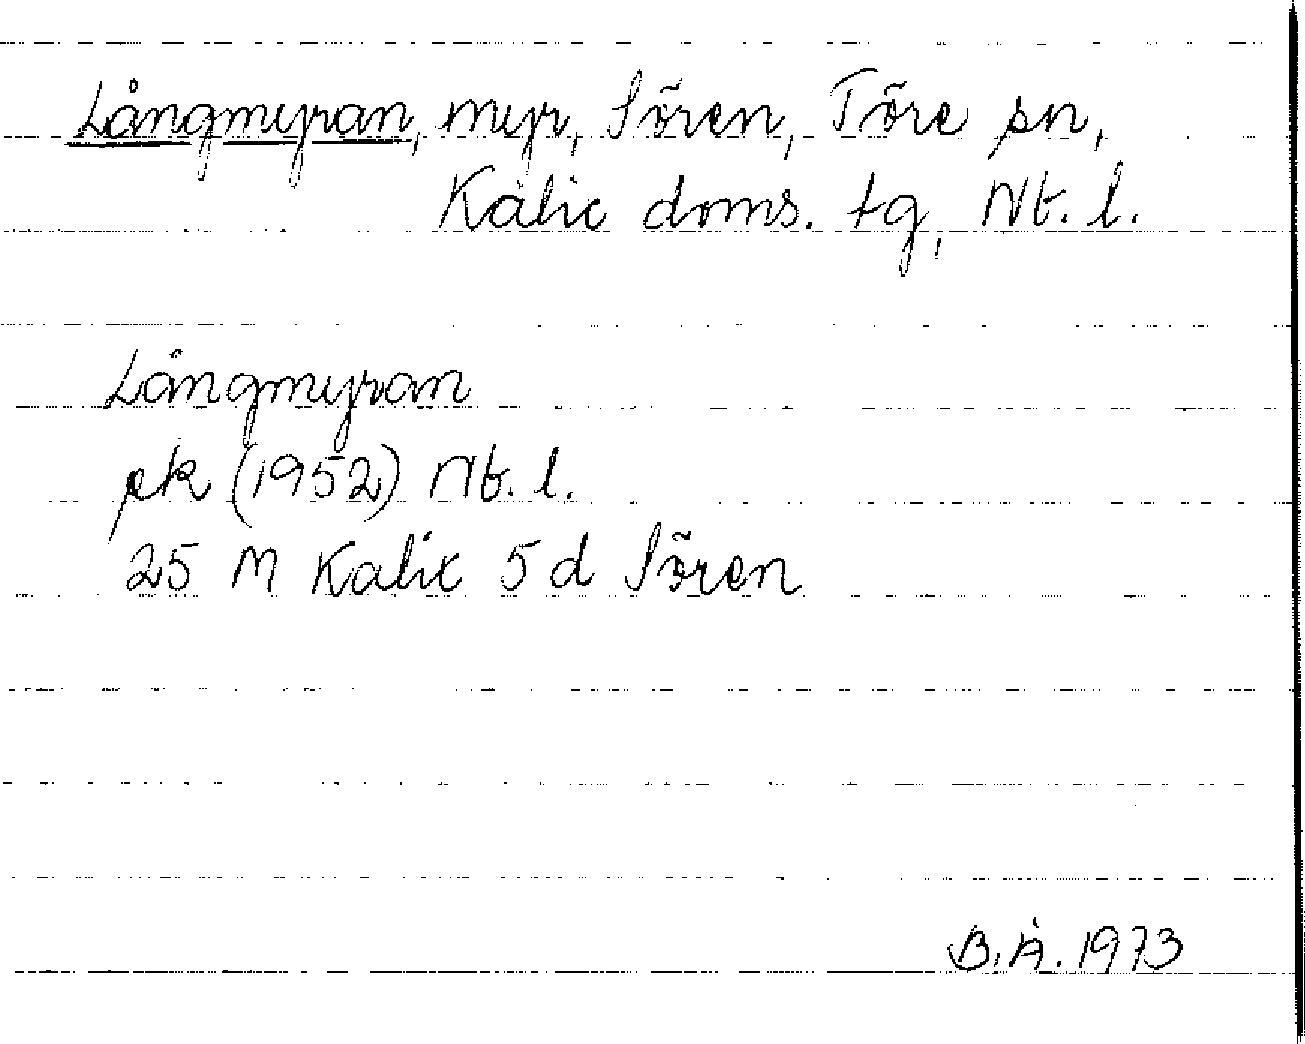 Långmyran, myr, Sören, Töre sn,
Kalix doms. tg, Nt. l.
Långmyran
ek (1952) Nb. l.
25 M Kalix 5 d Sören
B. Å. 1973